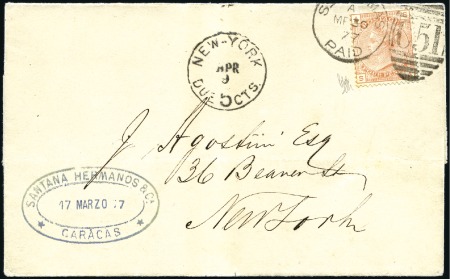 NEW-YORK
APR
9
DUE 5 CTS.
A
MR 30
77
PAID
051
J Agostini Esq
36 Beaver St
New York
SANTANA HERMANOS & Ca
17 MARZO 77
CARACAS